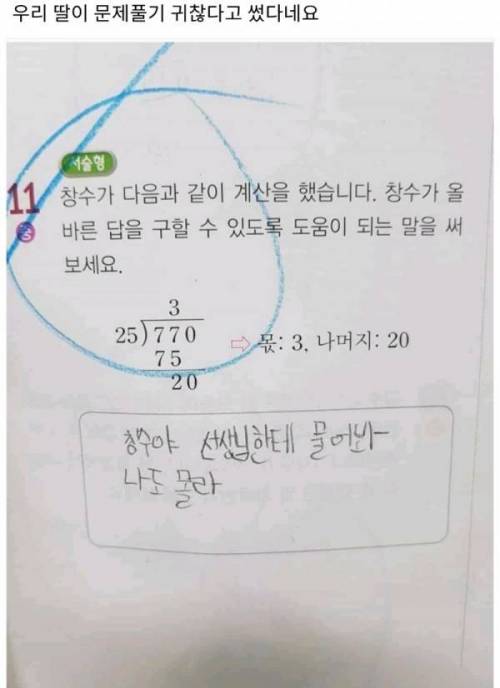 우리 딸이 문제풀기 귀찮다고 썼다네요
서술형
11 창수가 다음과 같이 계산을 했습니다. 창수가 올
중 바른 답을 구할 수 있도록 도움이 되는 말을 써
보세요.
3
25)770 ⇨ 몫: 3, 나머지: 20
75
20
창수야 선생님한테 물어봐
나도 몰라